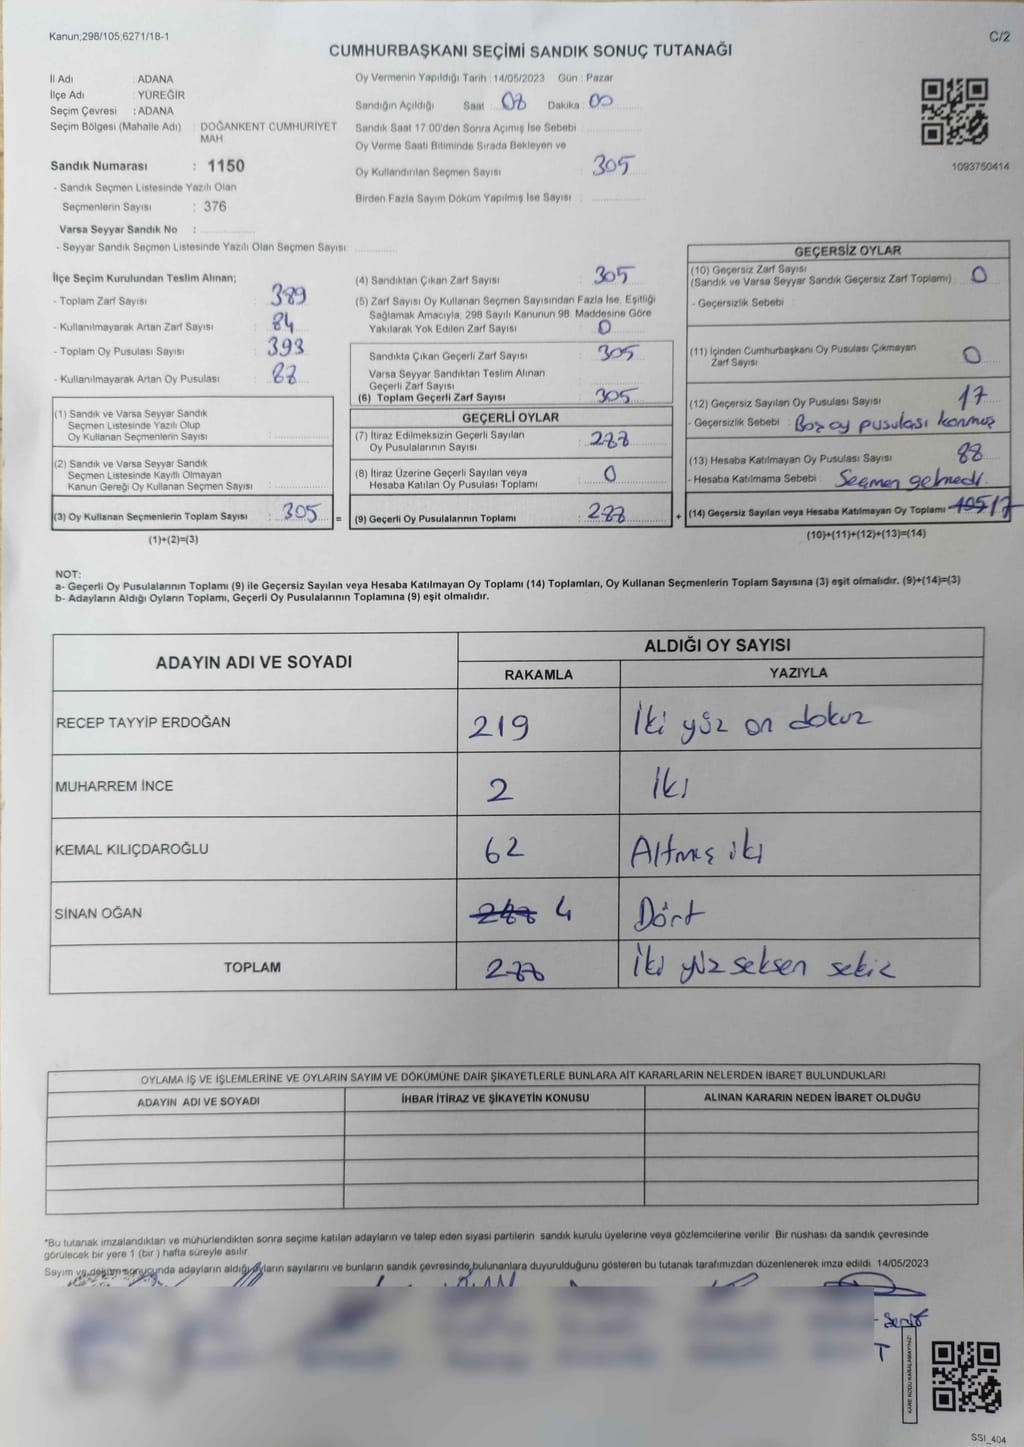 Kanun;298/105,6271/18-1
C/2
CUMHURBAŞKANI SEÇİMİ SANDIK SONUÇ TUTANAĞI
İl Adı : ADANA
İlçe Adı : YÜREĞİR
Seçim Çevresi : ADANA
Seçim Bölgesi (Mahalle Adı) : DOĞANKENT CUMHURİYET
MAH
Sandık Numarası : 1150
- Sandık Seçmen Listesinde Yazılı Olan
Seçmenlerin Sayısı : 376
Varsa Seyyar Sandık No :
- Seyyar Sandık Seçmen Listesinde Yazılı Olan Seçmen Sayısı
Oy Vermenin Yapıldığı Tarih : 14/05/2023 Gün : Pazar
Sandığın Açıldığı Saat : 08 Dakika : 00
Sandık Saat 17.00'den Sonra Açımış İse Sebebi
Oy Verme Saati Bitiminde Sırada Bekleyen ve
Oy Kullandırılan Seçmen Sayısı : 305
Birden Fazla Sayım Döküm Yapılmış İse Sayısı :
1093750414
İlçe Seçim Kurulundan Teslim Alınan;
- Toplam Zarf Sayısı : 389
- Kullanılmayarak Artan Zarf Sayısı : 84
- Toplam Oy Pusulası Sayısı : 393
- Kullanılmayarak Artan Oy Pusulası : 88
(1) Sandık ve Varsa Seyyar Sandık
Seçmen Listesinde Yazılı Olup
Oy Kullanan Seçmenlerin Sayısı :
(2) Sandık ve Varsa Seyyar Sandık
Seçmen Listesinde Kayıtlı Olmayan
Kanun Gereği Oy Kullanan Seçmen Sayısı :
(3) Oy Kullanan Seçmenlerin Toplam Sayısı : 305 =
(1)+(2)=(3)
(4) Sandıktan Çıkan Zarf Sayısı : 305
(5) Zarf Sayısı Oy Kullanan Seçmen Sayısından Fazla İse, Eşitliği
Sağlamak Amacıyla; 298 Sayılı Kanunun 98. Maddesine Göre
Yakılarak Yok Edilen Zarf Sayısı : 0
Sandıkta Çıkan Geçerli Zarf Sayısı : 305
Varsa Seyyar Sandıktan Teslim Alınan
Geçerli Zarf Sayısı :
(6) Toplam Geçerli Zarf Sayısı : 305
GEÇERLİ OYLAR
(7) İtiraz Edilmeksizin Geçerli Sayılan
Oy Pusulalarının Sayısı : 288
(8) İtiraz Üzerine Geçerli Sayılan veya
Hesaba Katılan Oy Pusulası Toplamı : 0
(9) Geçerli Oy Pusulalarının Toplamı : 288 +
GEÇERSİZ OYLAR
(10) Geçersiz Zarf Sayısı
(Sandık ve Varsa Seyyar Sandık Geçersiz Zarf Toplamı) : 0
- Geçersizlik Sebebi :
(11) İçinden Cumhurbaşkanı Oy Pusulası Çıkmayan
Zarf Sayısı : 0
(12) Geçersiz Sayılan Oy Pusulası Sayısı : 17
- Geçersizlik Sebebi : Boş oy pusulası konmuş
(13) Hesaba Katılmayan Oy Pusulası Sayısı : 88
- Hesaba Katılmama Sebebi : Seçmen gelmedi
(14) Geçersiz Sayılan veya Hesaba Katılmayan Oy Toplamı : 105 17
(10)+(11)+(12)+(13)=(14)
NOT:
a- Geçerli Oy Pusulalarının Toplamı (9) ile Geçersiz Sayılan veya Hesaba Katılmayan Oy Toplamı (14) Toplamları, Oy Kullanan Seçmenlerin Toplam Sayısına (3) eşit olmalıdır. (9)+(14)=(3)
b- Adayların Aldığı Oyların Toplamı, Geçerli Oy Pusulalarının Toplamına (9) eşit olmalıdır.
ADAYIN ADI VE SOYADI
ALDIĞI OY SAYISI
RAKAMLA YAZIYLA
RECEP TAYYİP ERDOĞAN 219 İki yüz on dokuz
MUHARREM İNCE 2 İki
KEMAL KILIÇDAROĞLU 62 Altmış iki
SİNAN OĞAN 288 4 Dört
TOPLAM 288 İki yüz seksen sekiz
OYLAMA İŞ VE İŞLEMLERİNE VE OYLARIN SAYIM VE DÖKÜMÜNE DAİR ŞİKAYETLERLE BUNLARA AİT KARARLARIN NELERDEN İBARET BULUNDUKLARI
ADAYIN ADI VE SOYADI İHBAR İTİRAZ VE ŞİKAYETİN KONUSU ALINAN KARARIN NEDEN İBARET OLDUĞU
*Bu tutanak imzalandıktan ve mühürlendikten sonra seçime katılan adayların ve talep eden siyasi partilerin sandık kurulu üyelerine veya gözlemcilerine verilir. Bir nüshası da sandık çevresinde
görülecek bir yere 1 (bir ) hafta süreyle asılır.
Sayım ve döküm sonucunda adayların aldığı oyların sayılarını ve bunların sandık çevresinde bulunanlara duyurulduğunu gösteren bu tutanak tarafımızdan düzenlenerek imza edildi. 14/05/2023
T
KARE KODU KARALAMAYINIZ!
SSI_404